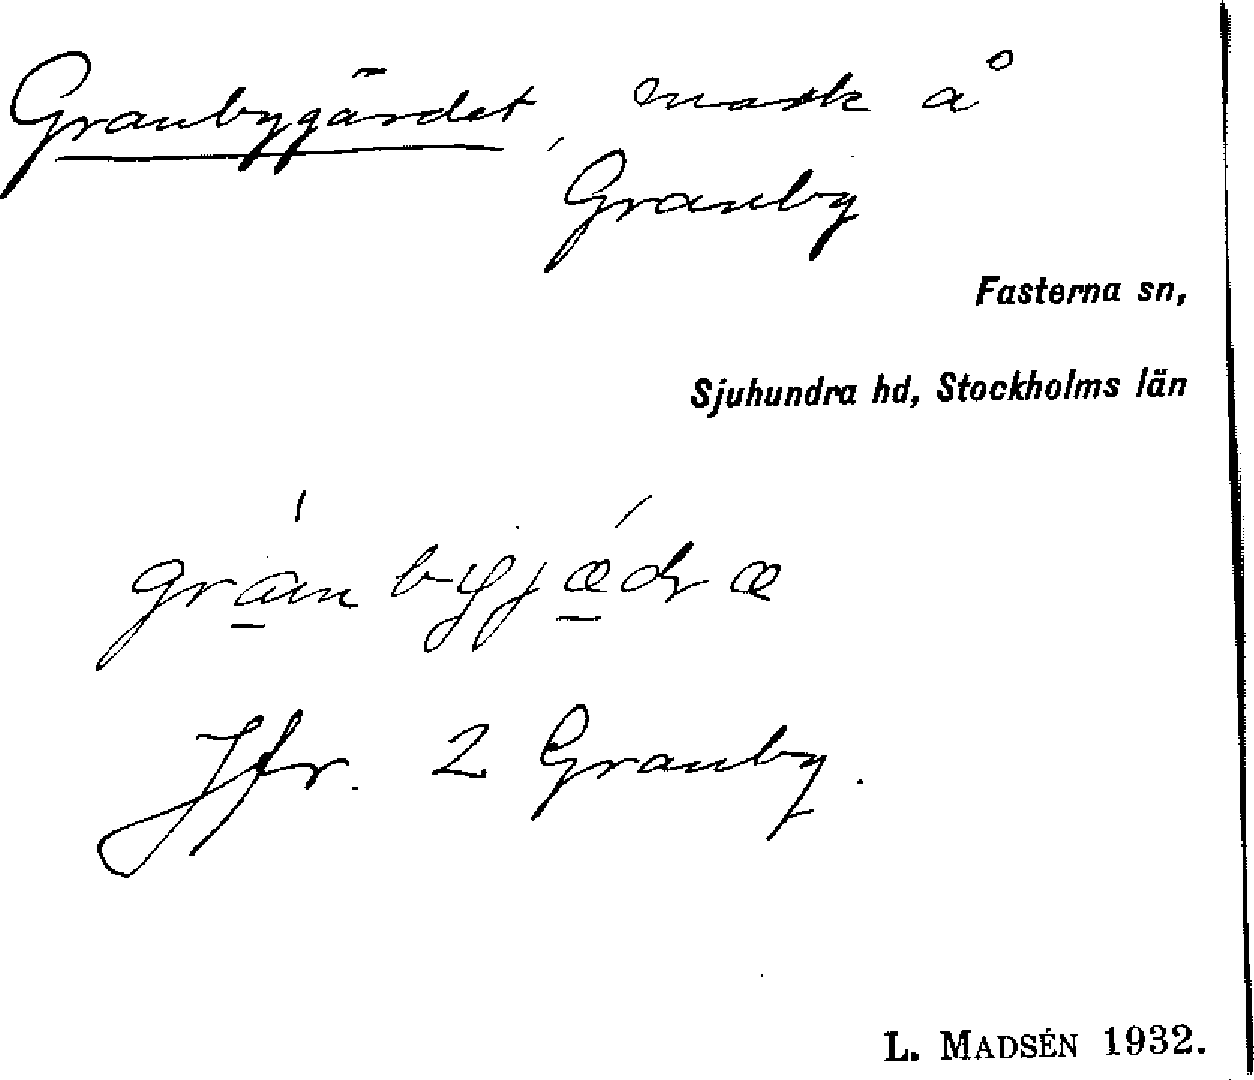 Granbygärdet, mark å
Granby
Fasterna sn,
Sjuhundra hd, Stockholms län
Jfr. 2 Granby.
L. MADSÉN 1932.